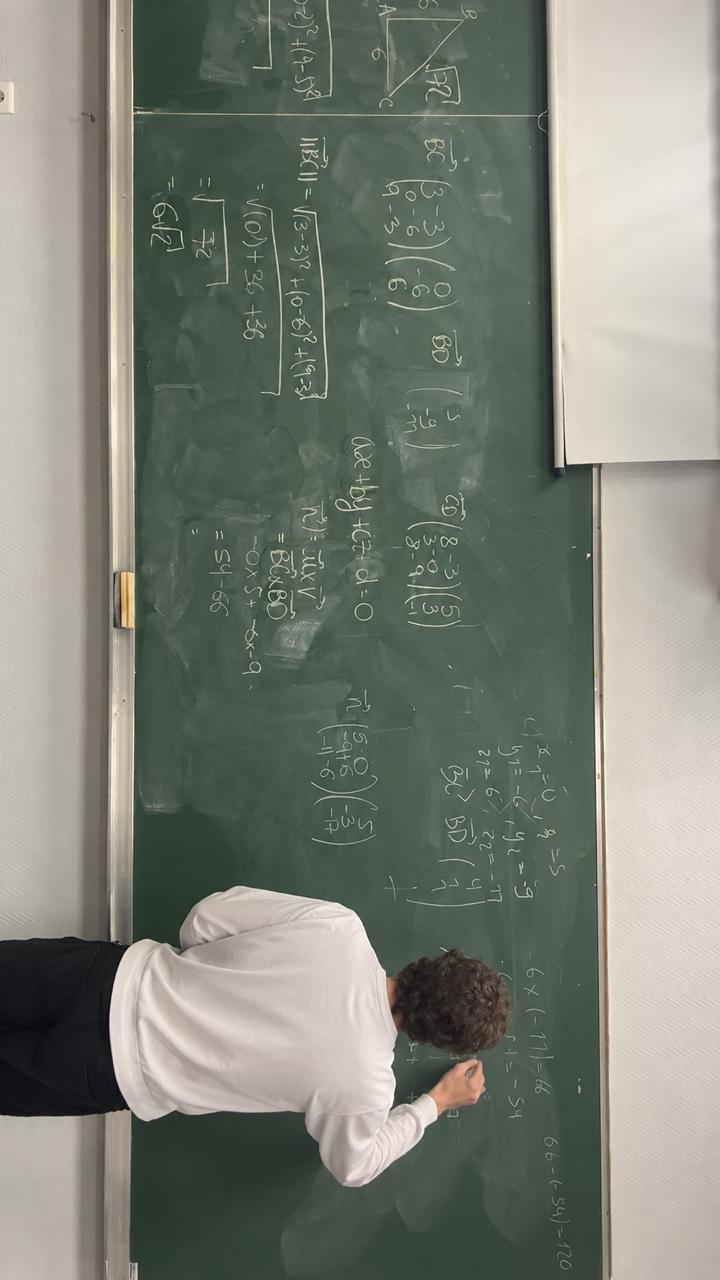 B
A 6
√72
6
C
-2)² + (9-3)²
BC (3-3 0-6 9-3) (0 -6 6)
BD (5 -9 -11)
CD (8-3 3-0 8-9) (5 3 -1)
||BC|| = √(3-3)² + (0-6)² + (9-3)²
= √(0) + 36 + 36
= √72
= 6√2
ax + by + cz + d = 0
n) = u x v
= BC x BD
-0x5 + -6x-9
= 54-66
=
n (5-0 -9+6 -11-6) (5 -3 -17)
c) x1 = 0, x2 = 5
y1 = -6, y2 = -9
z1 = 6, z2 = -11
BC BD
-6 x (-11) = 66
= -54
66-(-54) = 120